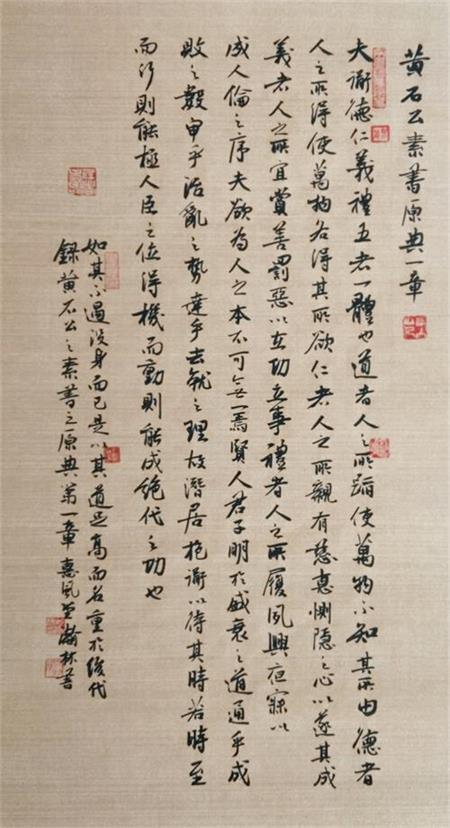 黄石公素書原典一章
夫衜德仁義禮五者一體也道者人之所蹈使萬物不知其所由德者
人之所得使萬物各得其所欲仁者人之所親有慈惠惻隐之心以遂其成
義者人之所宜賞善罰惡以立功立事禮者人之所履夙興夜寐以
成人倫之序夫欲為人之本不可无一焉賢人君子明於盛衰之道通乎成
敗之數审乎治亂之勢達乎去就之理故潛居抱衜以待其時若時至
而行則能極人臣之位得機而動則能成绝代之功也
如其不遇没身而已是以其道足高而名重於後代
録黄石公之素書之原典第一章惠風堂瀚林書